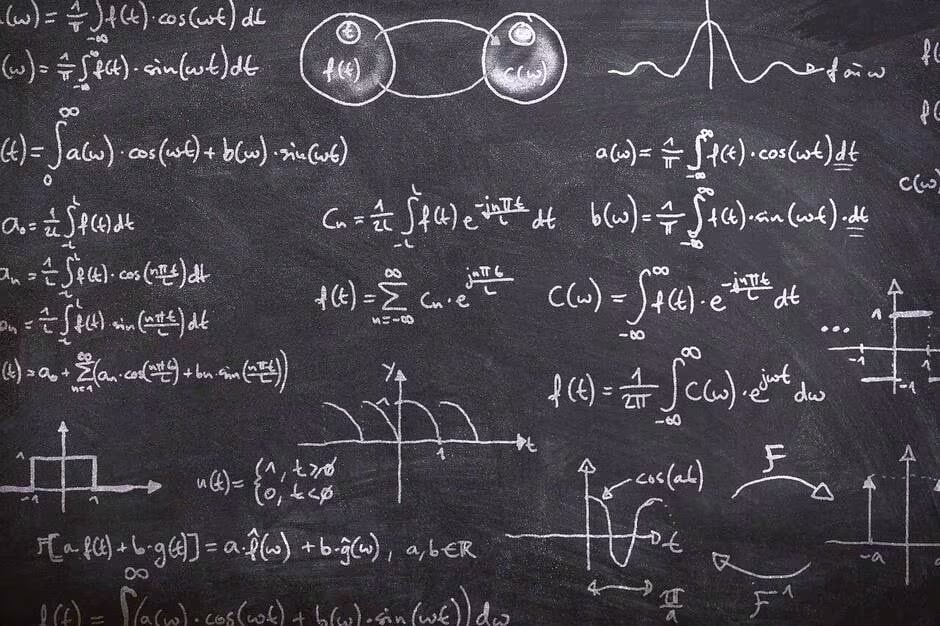 (ω) = 1/π ∫_{-∞} f(t)·cos(ωt) dt
(ω) = 1/π ∫_{-∞}^{∞} f(t)·sin(ωt) dt
t
f(t)
C(ω)
ω
f(
(t) = ∫_{0}^{∞} a(ω)·cos(ωt) + b(ω)·sin(ωt)
a(ω) = 1/π ∫_{-∞}^{∞} f(t)·cos(ωt) dt
C(ω)
a₀ = 1/2L ∫_{-L}^{L} f(t) dt
Cn = 1/2L ∫_{-L}^{L} f(t) e^{-jnπt/L} dt
b(ω) = 1/π ∫_{-∞}^{∞} f(t)·sin(ωt)·dt
an = 1/L ∫_{-L}^{L} f(t)·cos(nπt/L) dt
f(t) = ∑_{n=-∞}^{∞} Cn·e^{jnπt/L}
C(ω) = ∫_{-∞}^{∞} f(t)·e^{-jnπt/L} dt
n = 1/L ∫_{-L}^{L} f(t)·sin(nπt/L) dt
...
1
-1
-1
(t) = a₀ + ∑_{n=1}^{∞} (an·cos(nπt/L) + bn·sin(nπt/L))
f(t) = 1/2π ∫_{-∞}^{∞} C(ω)·e^{jωt} dω
y
1
1
t
1
-1
1
u(t) = {1, t≥0
{0, t<0
cos(at)
t
π/a
F
F⁻¹
-a
F[a·f(t) + b·g(t)] = a·f̂(ω) + b·ĝ(ω), a,b∈ℝ
f(t) = ∫^{∞} (a(ω)·cos(ωt) + b(ω)·sin(ωt)) dω